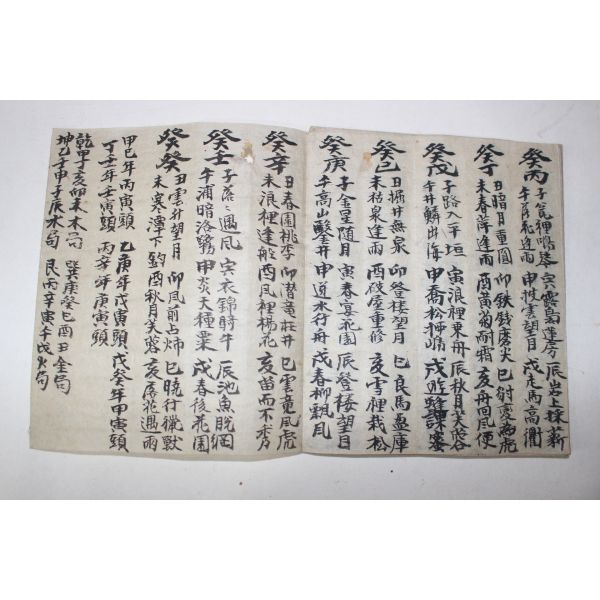 癸丙 子 裡鳴琴 寅雲 逢 辰岩上採薪
午 花逢雨 申披雲望月 戌走馬高衢
癸丁 丑暗月重圓 卯鉄 磨尖 巳 变 虎
未春 逢雨 酉黄菊耐霜 亥舟回風便
癸戊 子路入平垣 寅浪裡東舟 辰秋月芙蓉
午井鱗出海 申喬松 戌遊蜂課蜜
癸己 丑掘井無泉 卯登楼望月 巳良馬 庫
未枯泉逢雨 酉破屋重修 亥雪裡栽松
癸庚 子金星随月 寅春宴花園 辰登楼望月
午高山鑿井 申逆水行舟 戌春柳飄風
癸辛 丑春園桃李 卯潜竜在井 巳雲竜風虎
未浪裡逢船 酉風裡楊花 亥苗而不秀
癸壬 子落 遇風 寅衣錦 牛 辰池魚脱網
午浦暗落鴈 申炎天種粟 戌春後花園
癸癸 丑雲外望月 卯風前占 巳暁行獵獸
未寒潭下釣 酉秋月芙蓉 亥 花遇雨
甲巳年丙寅頭 乙庚年戊寅頭 戊癸年甲寅頭
丁壬年壬寅頭 丙辛年庚寅頭
乾甲丁亥卯未木局 巽庚癸巳酉丑金局
坤乙壬申子辰水局 艮丙辛寅午戌火局